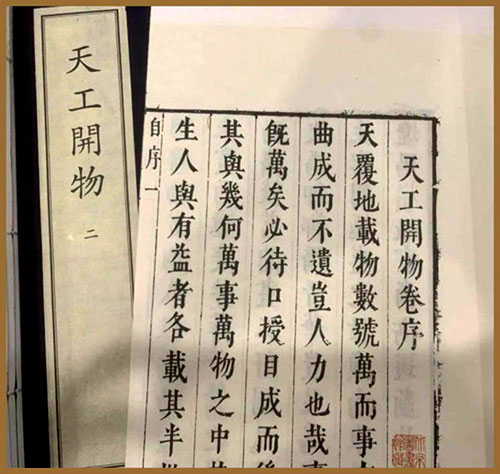 天工開物 二
天工開物卷序
天覆地載物數號萬而事
曲成而不遺豈人力也哉事
旣萬矣必待口授目成而後
其與幾何萬事萬物之中
生人與有益者各載其半
自序一